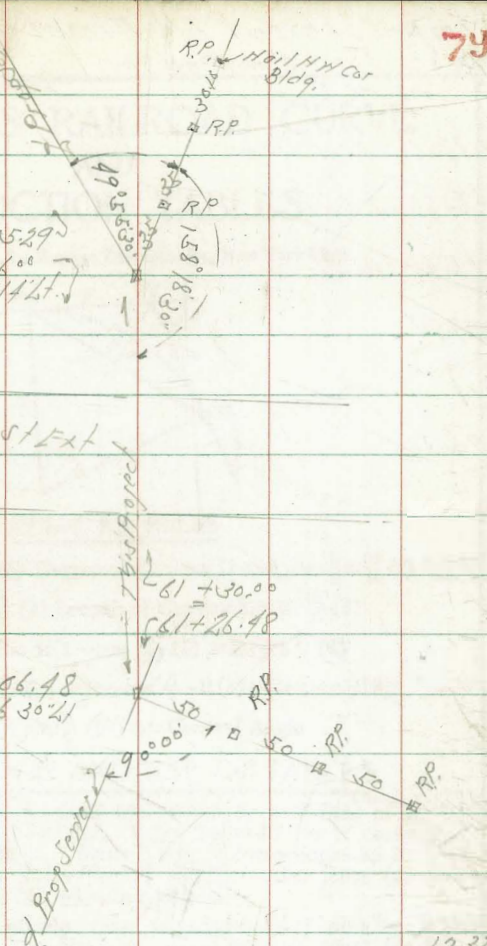 79
R.P. Nail N.W. Cor
Bldg.
30.0
R.P.
R.P.
49°55'30"
158°18'30"
5.29
St Ext
This Project
61 + 30.00
=
61+26.48
06.48
50
R.P.
50
R.P.
50
R.P.
90°00'
Prop Sewer